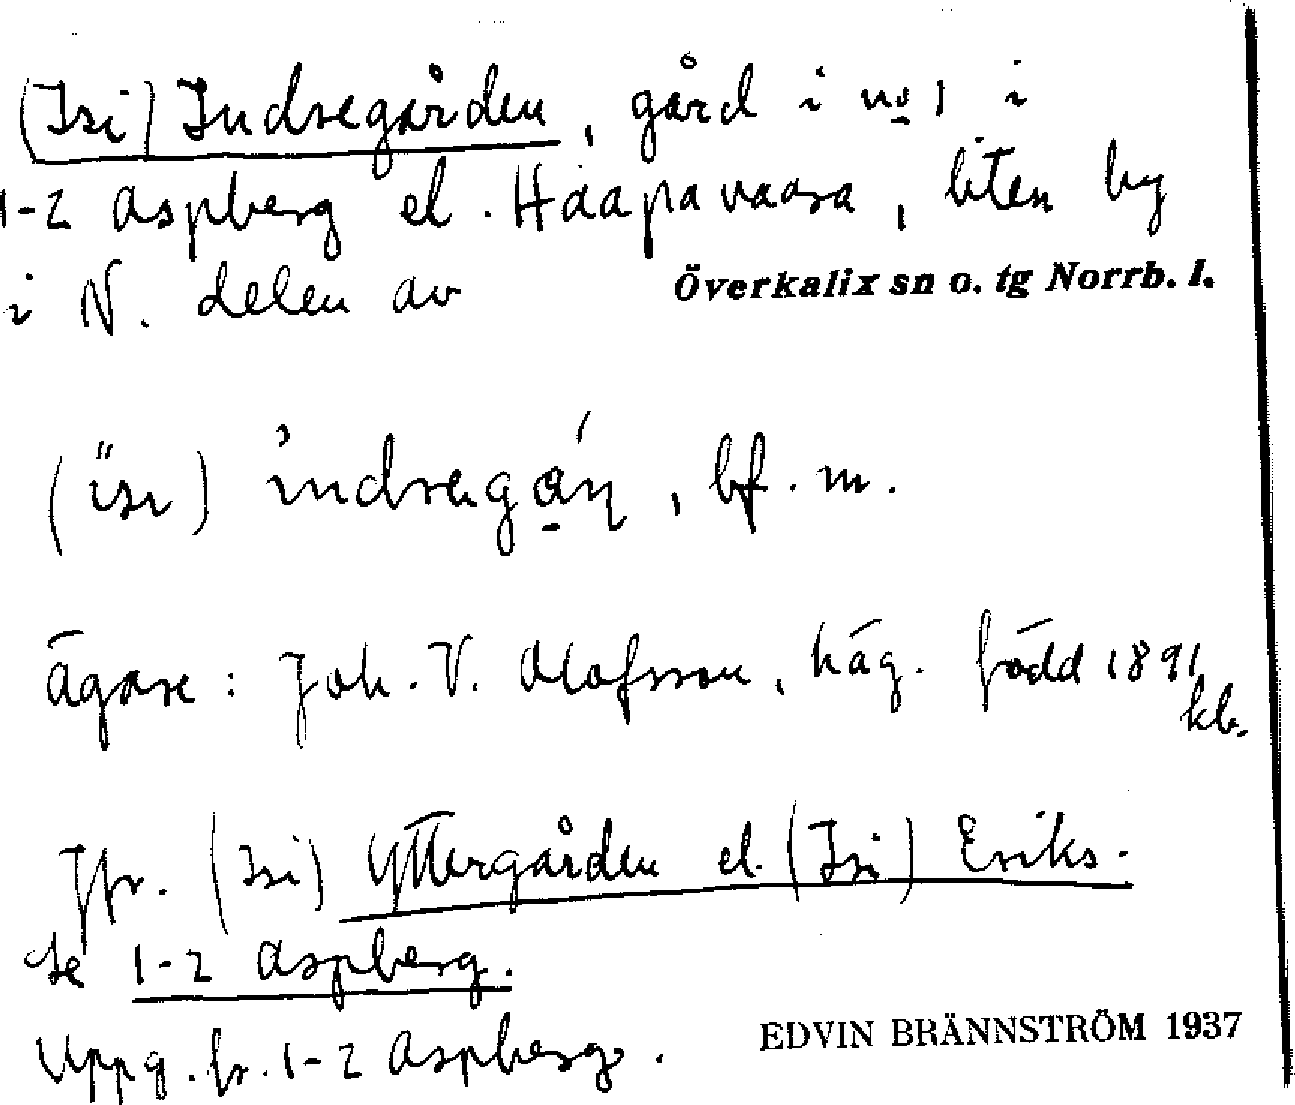 (Isi) Indregården, gård i no 1 i
1-2 Aspberg el. Haapavaara, liten by
i N. delen av Överkalix sn o. tg Norrb. l.
(ïsı) ìndrəga̱ńn̥, bf. m.
ägare: Joh. V. Olofsson, häg. född 1891
kb.
Jfr. (Isi) Yttergården el. (Isi) Eriks.
se 1-2 Aspberg.
Uppg. fr. 1-2 Aspberg.
EDVIN BRÄNNSTRÖM 1937